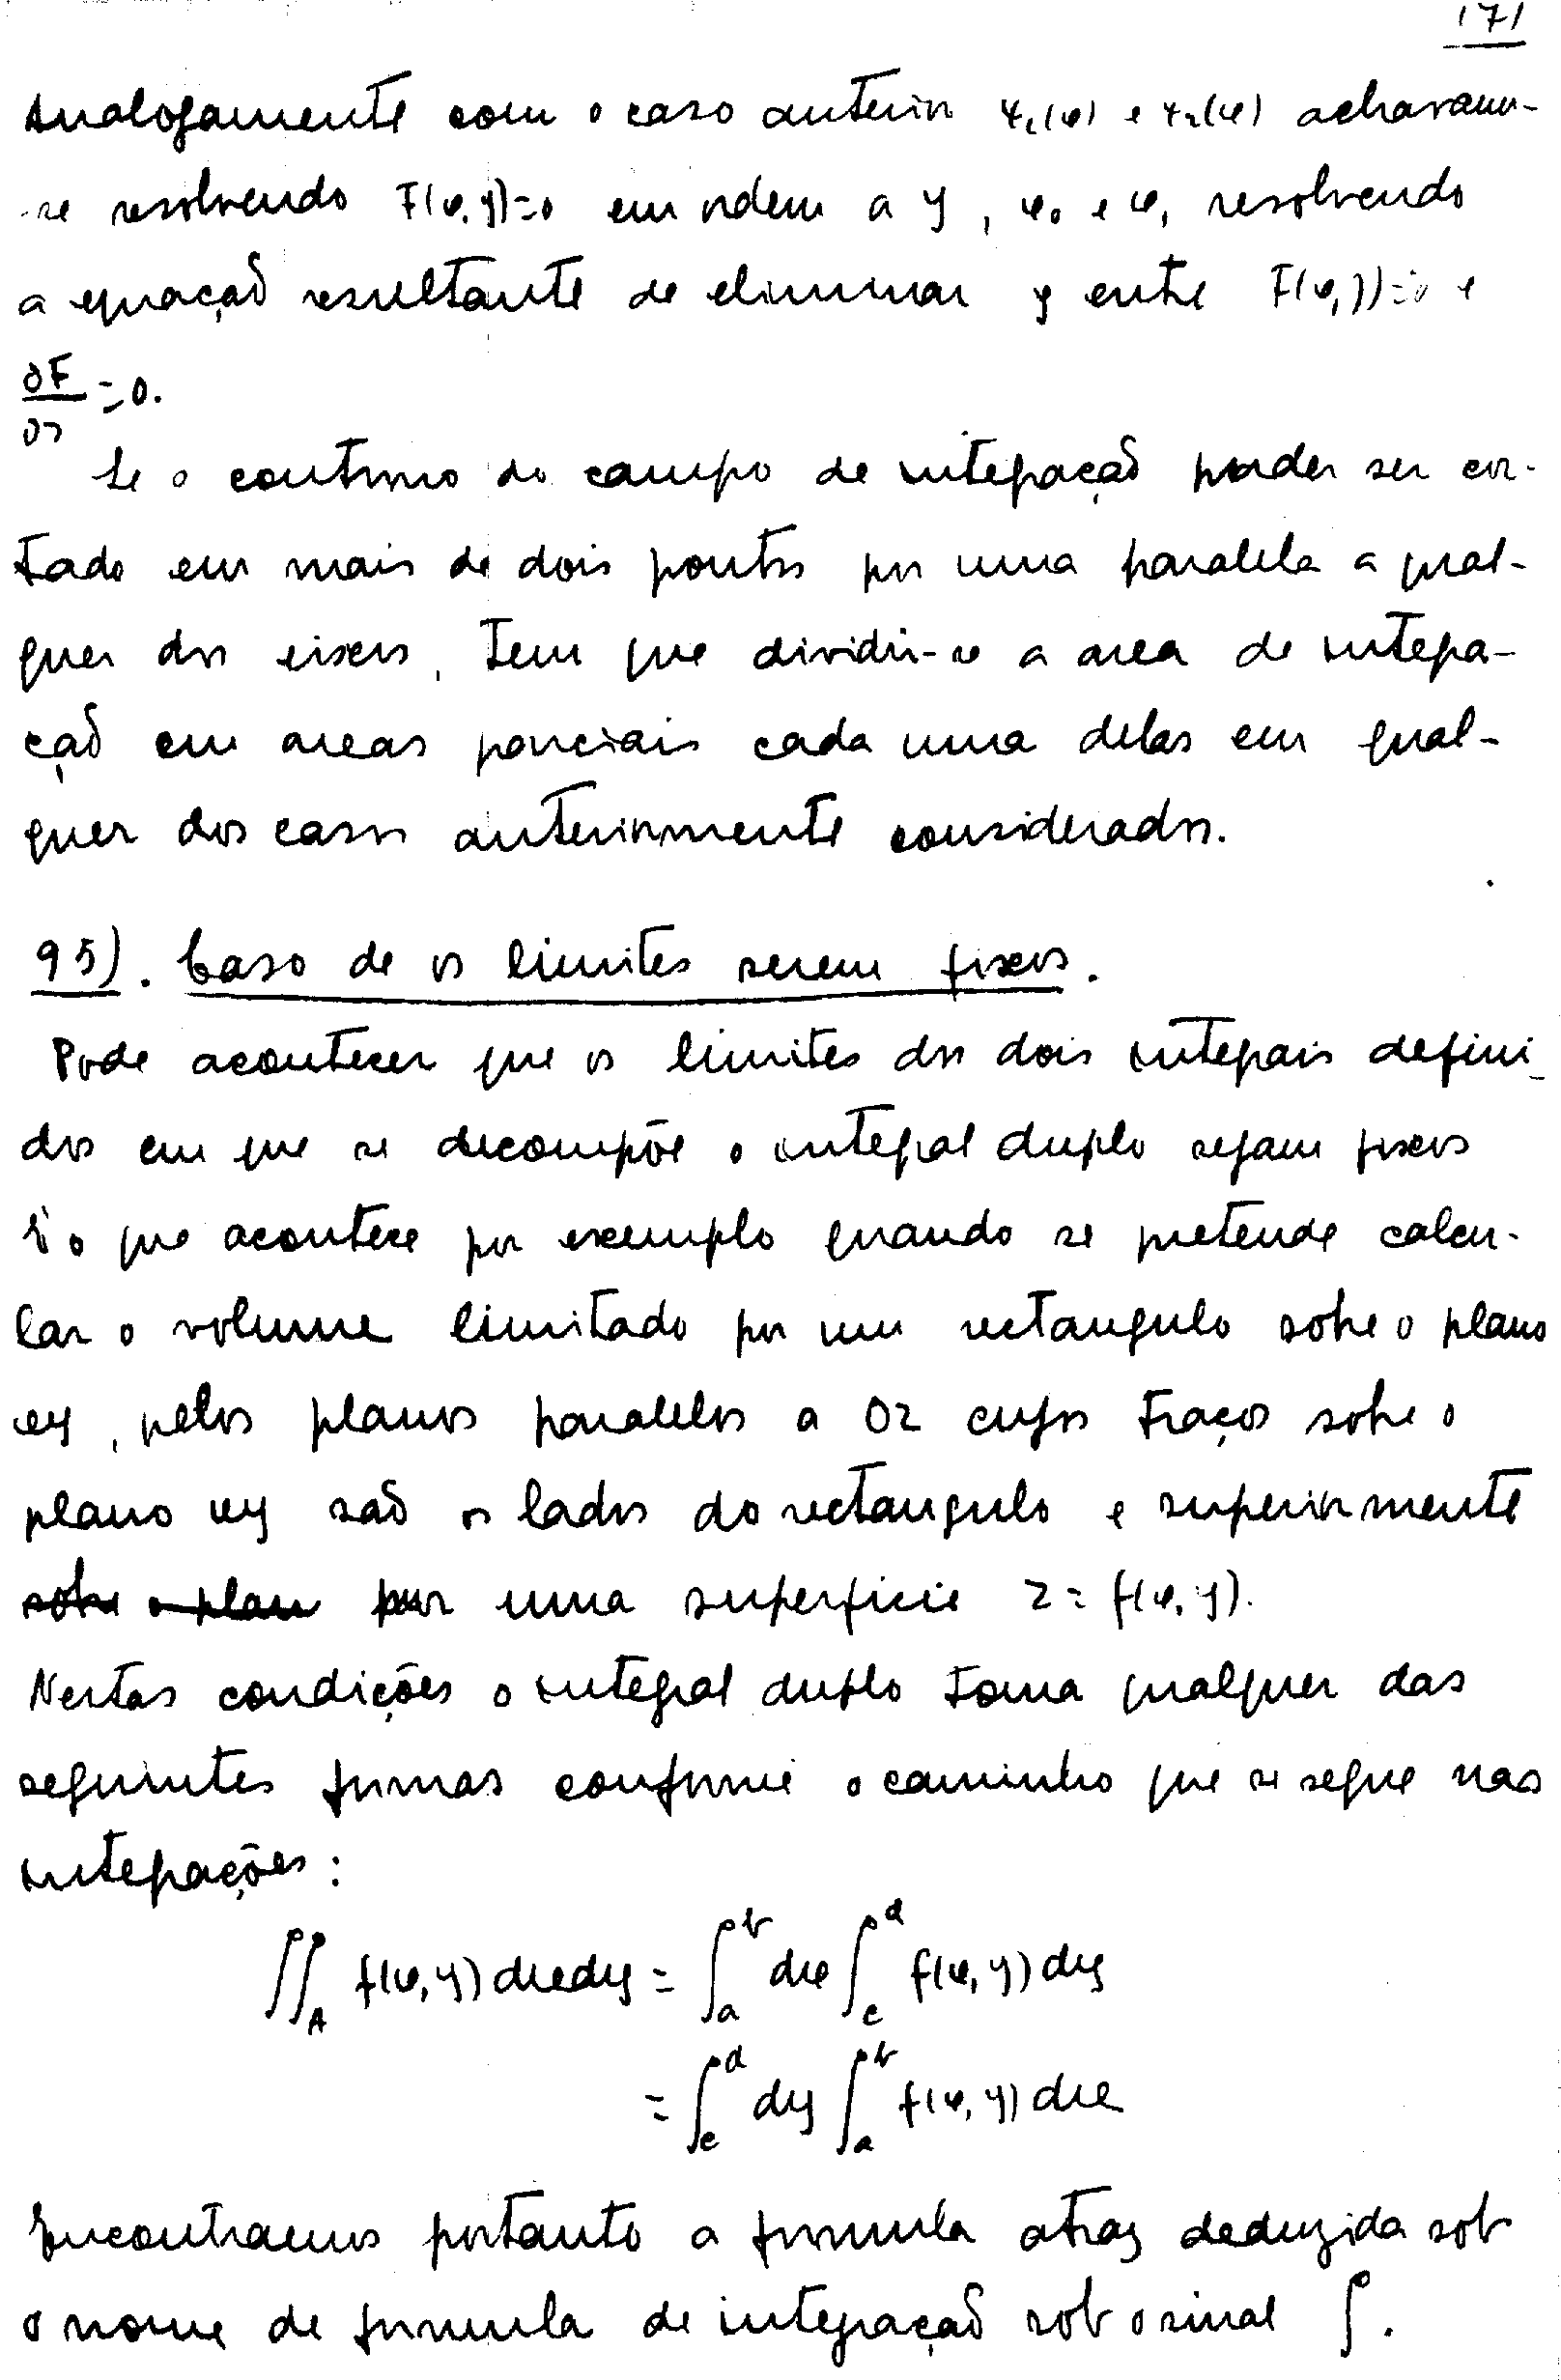 171
Analogamente com o caso anterior ψ₁(x) e ψ₂(x) achavam-
-se resolvendo F(x,y)=0 em ordem a y, x₀ e x₁ resolvendo
a equação resultante de eliminar y entre F(x,y)=0 e
∂F/∂y = 0.
Se o contorno do campo de integração puder ser cor-
tado em mais de dois pontos por uma paralela a qual-
quer dos eixos, tem que dividir-se a area de integra-
ção em areas parciais cada uma delas em qual-
quer dos casos anteriormente considerados.
95). Caso de os limites serem fixos.
Pode acontecer que os limites dos dois integrais defini-
dos em que se decompõe o integral duplo sejam fixos
É o que acontece por exemplo quando se pretende calcu-
lar o volume limitado por um rectangulo sobre o plano
xy, pelos planos paralelos a Oz cujos traços sobre o
plano xy são os lados do rectangulo e superiormente
sobre o plan por uma superficie z = f(x,y).
Nestas condições o integral duplo toma qualquer das
seguintes formas conforme o caminho que se segue nas
integrações:
∬_A f(x,y) dx dy = ∫_a^b dx ∫_c^d f(x,y) dy
= ∫_c^d dy ∫_a^b f(x,y) dx
Encontramos portanto a formula atraz deduzida sob
o nome de formula de integração sob o sinal ∫.